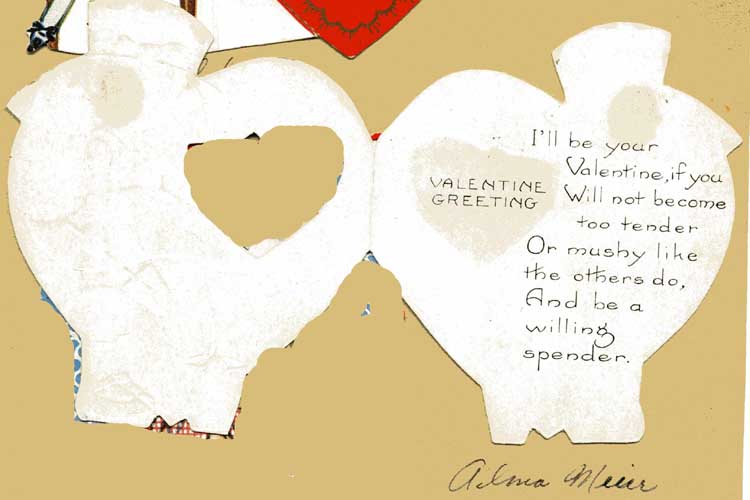 VALENTINE
GREETING
I'll be your
Valentine, if you
Will not become
too tender
Or mushy like
the others do,
And be a
willing
spender.
Adma Meier